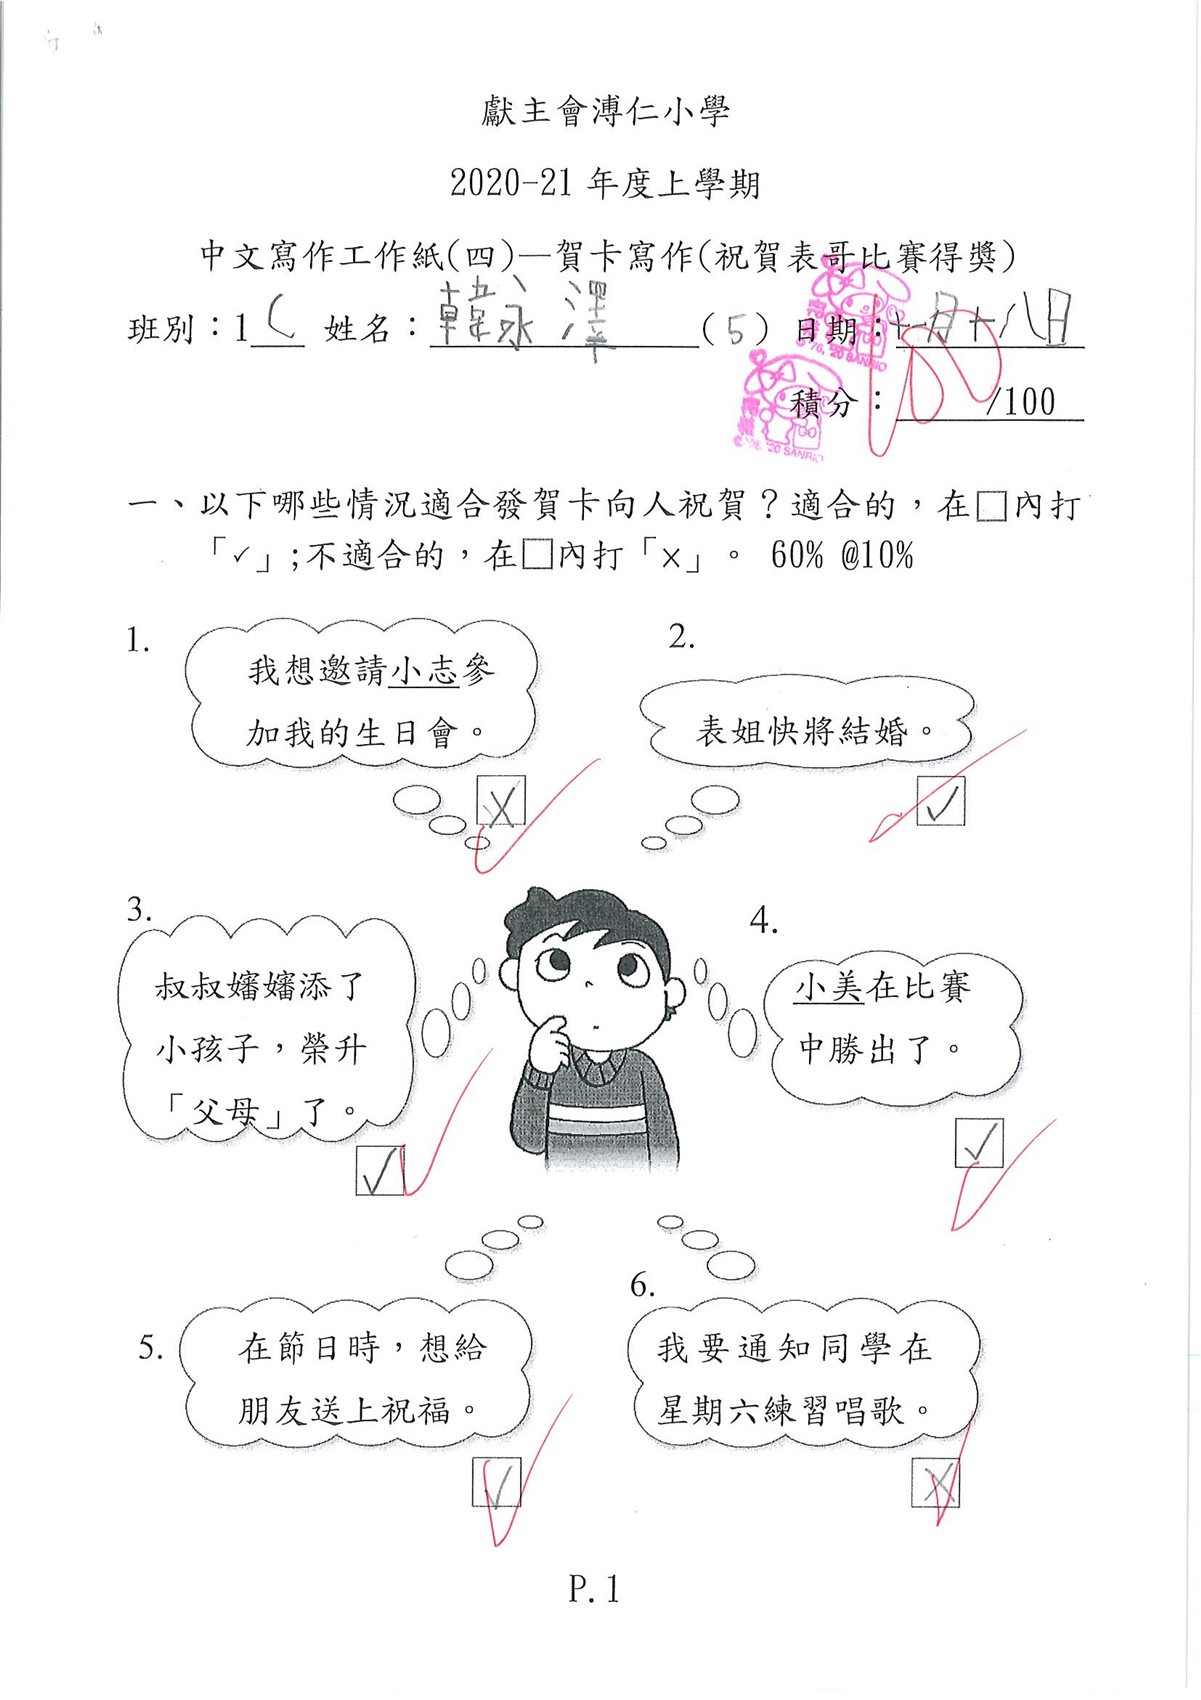 獻主會溥仁小學
2020-21 年度上學期
中文寫作工作紙(四)—賀卡寫作(祝賀表哥比賽得獎)
班別：1C 姓名：韓永澤 (5) 日期：十一月十八日
積分：100/100
一、以下哪些情況適合發賀卡向人祝賀？適合的，在□內打
「✓」;不適合的，在□內打「×」。 60% @10%
1.
我想邀請小志參
加我的生日會。
×
2.
表姐快將結婚。
✓
3.
叔叔嬸嬸添了
小孩子，榮升
「父母」了。
✓
4.
小美在比賽
中勝出了。
✓
5.
在節日時，想給
朋友送上祝福。
✓
6.
我要通知同學在
星期六練習唱歌。
×
P.1